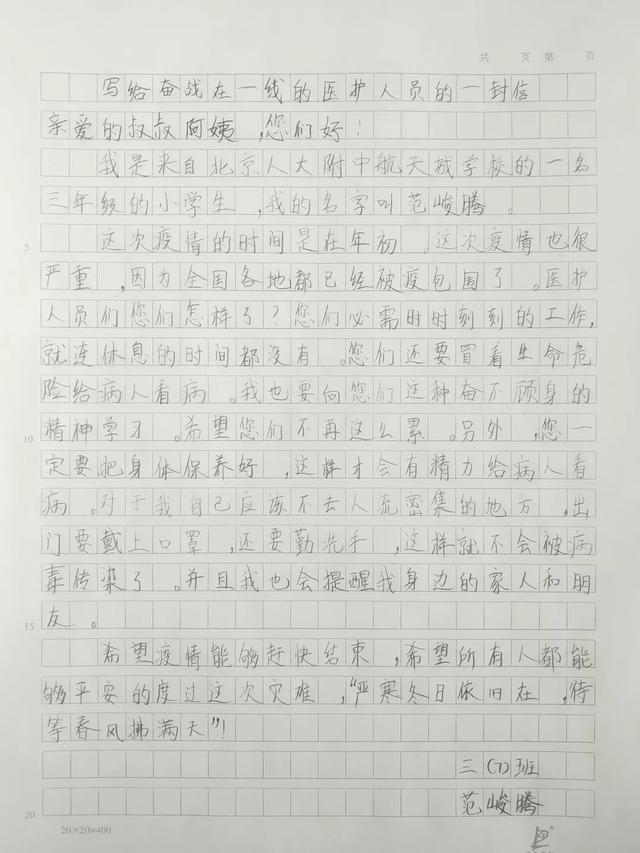 共 页 第 页
写给奋战在一线的医护人员的一封信
亲爱的叔叔阿姨,您们好!
我是来自北京人大附中航天城学校的一名
三年级的小学生,我的名字叫范峻腾。
5
这次疫情的时间是在年初。这次疫情也很
严重,因为全国各地都已经被疫包围了。医护
人员们您们怎样了?您们必需时时刻刻的工作,
就连休息的时间都没有。您们还要冒着生命危
险给病人看病。我也要向您们这种奋不顾身的
10
精神学习。希望您们不再这么累。另外,您一
定要把身体保养好,这样才会有精力给病人看
病。对于我自己应该不去人流密集的地方,出
门要戴上口罩,还要勤洗手,这样就不会被病
毒传染了。并且我也会提醒我身边的家人和朋
15
友。
希望疫情能够赶快结束,希望所有人都能
够平安的度过这次灾难,“严寒冬日依旧在,待
等春风拂满天”!
三(7)班
20
范峻腾
20×20=400